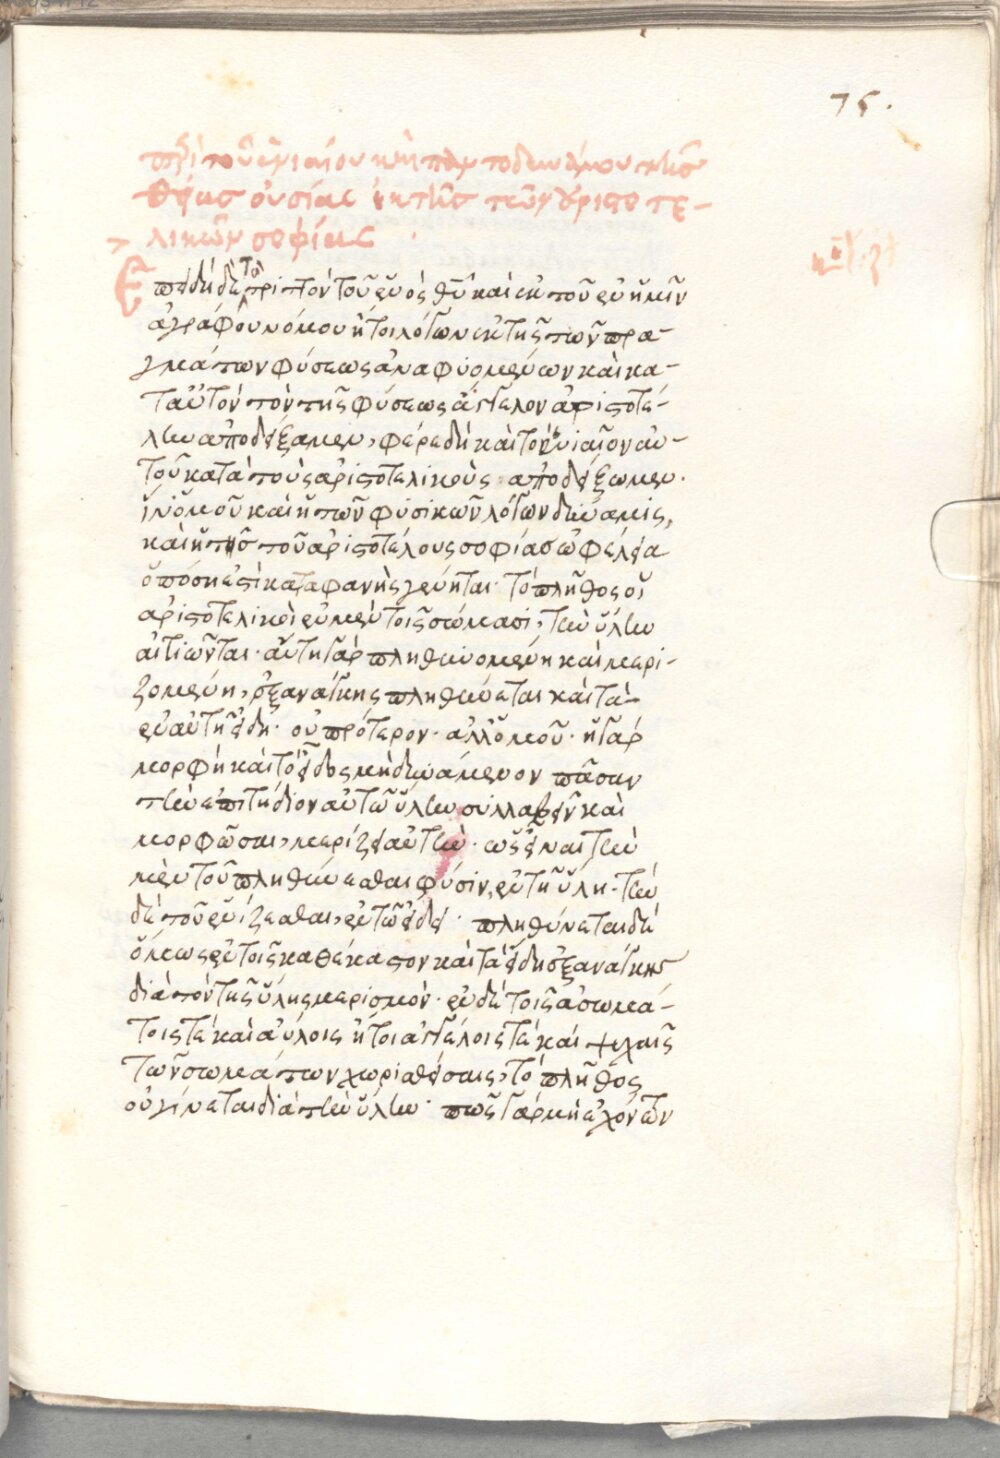 75.
περὶ τοῦ ἑνιαίου καὶ παντοδυνάμου τῆς
θείας οὐσίας ἐκ τῆς τῶν ἀριστοτε-
λικῶν σοφίας
Ἐπειδὴ δὲ τὸ τριττὸν τοῦ ἑνὸς θεοῦ καὶ ἐκ τοῦ ἐν ἡμῖν
ἀγράφου νόμου ἤτοι λόγων ἐκ τῆς τῶν πρα-
γμάτων φύσεως ἀναφυομένων καὶ κα-
τ' αὐτὸν τὸν τῆς φύσεως ἄγγελον ἀριστοτέ-
λην ἀπεδείξαμεν, φέρε δὴ καὶ τὸ ἑνιαῖον αὐ-
τοῦ κατὰ τοὺς ἀριστοτελικοὺς ἀποδείξωμεν.
ἵν' ὁμοῦ καὶ ἡ τῶν φυσικῶν λόγων δύναμις,
καὶ ἡ τῆς τοῦ ἀριστοτέλους σοφίας ὠφέλεια
ὁπόση ἐστὶ καταφανὴς γένηται. τὸ πλῆθος οἱ
ἀριστοτελικοὶ ἐν μὲν τοῖς σώμασι, τὴν ὕλην
αἰτιῶνται. αὕτη γὰρ πληθυνομένη καὶ μερι-
ζομένη, ἐξ ἀνάγκης πληθύνεται καὶ τὰ
ἐν αὐτῇ εἴδη. οὐ πρότερον. ἀλλ' ὁμοῦ. ἡ γὰρ
μορφὴ καὶ τὸ εἶδος μὴ δυνάμενον πᾶσαν
τὴν ἐπιτήδειον αὐτῷ ὕλην συλλαβεῖν καὶ
μορφῶσαι, μερίζει αὐτὴν. ὡς εἶναι τὴν
μὲν τοῦ πληθύνεσθαι φύσιν, ἐν τῇ ὕλῃ. τὴν
δὲ τοῦ ἑνίζεσθαι, ἐν τῷ εἴδει. πληθύνεται δὲ
ὅμως ἐν τοῖς καθέκαστον καὶ τὰ εἴδη ἐξ ἀνάγκης
διὰ τὸν τῆς ὕλης μερισμόν. ἐν δὲ τοῖς ἀσωμά-
τοις τὲ καὶ ἀΰλοις ἤτοι ἀγγέλοις τὲ καὶ ψυχαῖς
τῶν σωμάτων χωρισθείσαις, τὸ πλῆθος
οὐ γίνεται διὰ τὴν ὕλην. πῶς γὰρ μὴ ἐχόντων